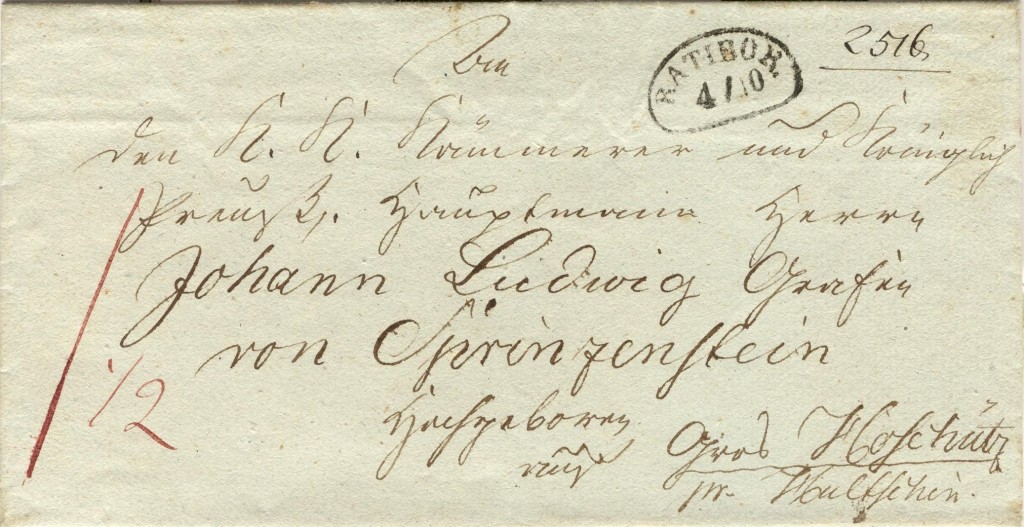 An
RATIBOR
4/10
2516
den K. K. Kämmerer und Königlich
Preuß. Hauptmann Herrn
Johann Ludwig Grafen
von Sprinzenstein
Hochgeboren
auf
Gros Hoschütz
pr. Hultschin.
1/2